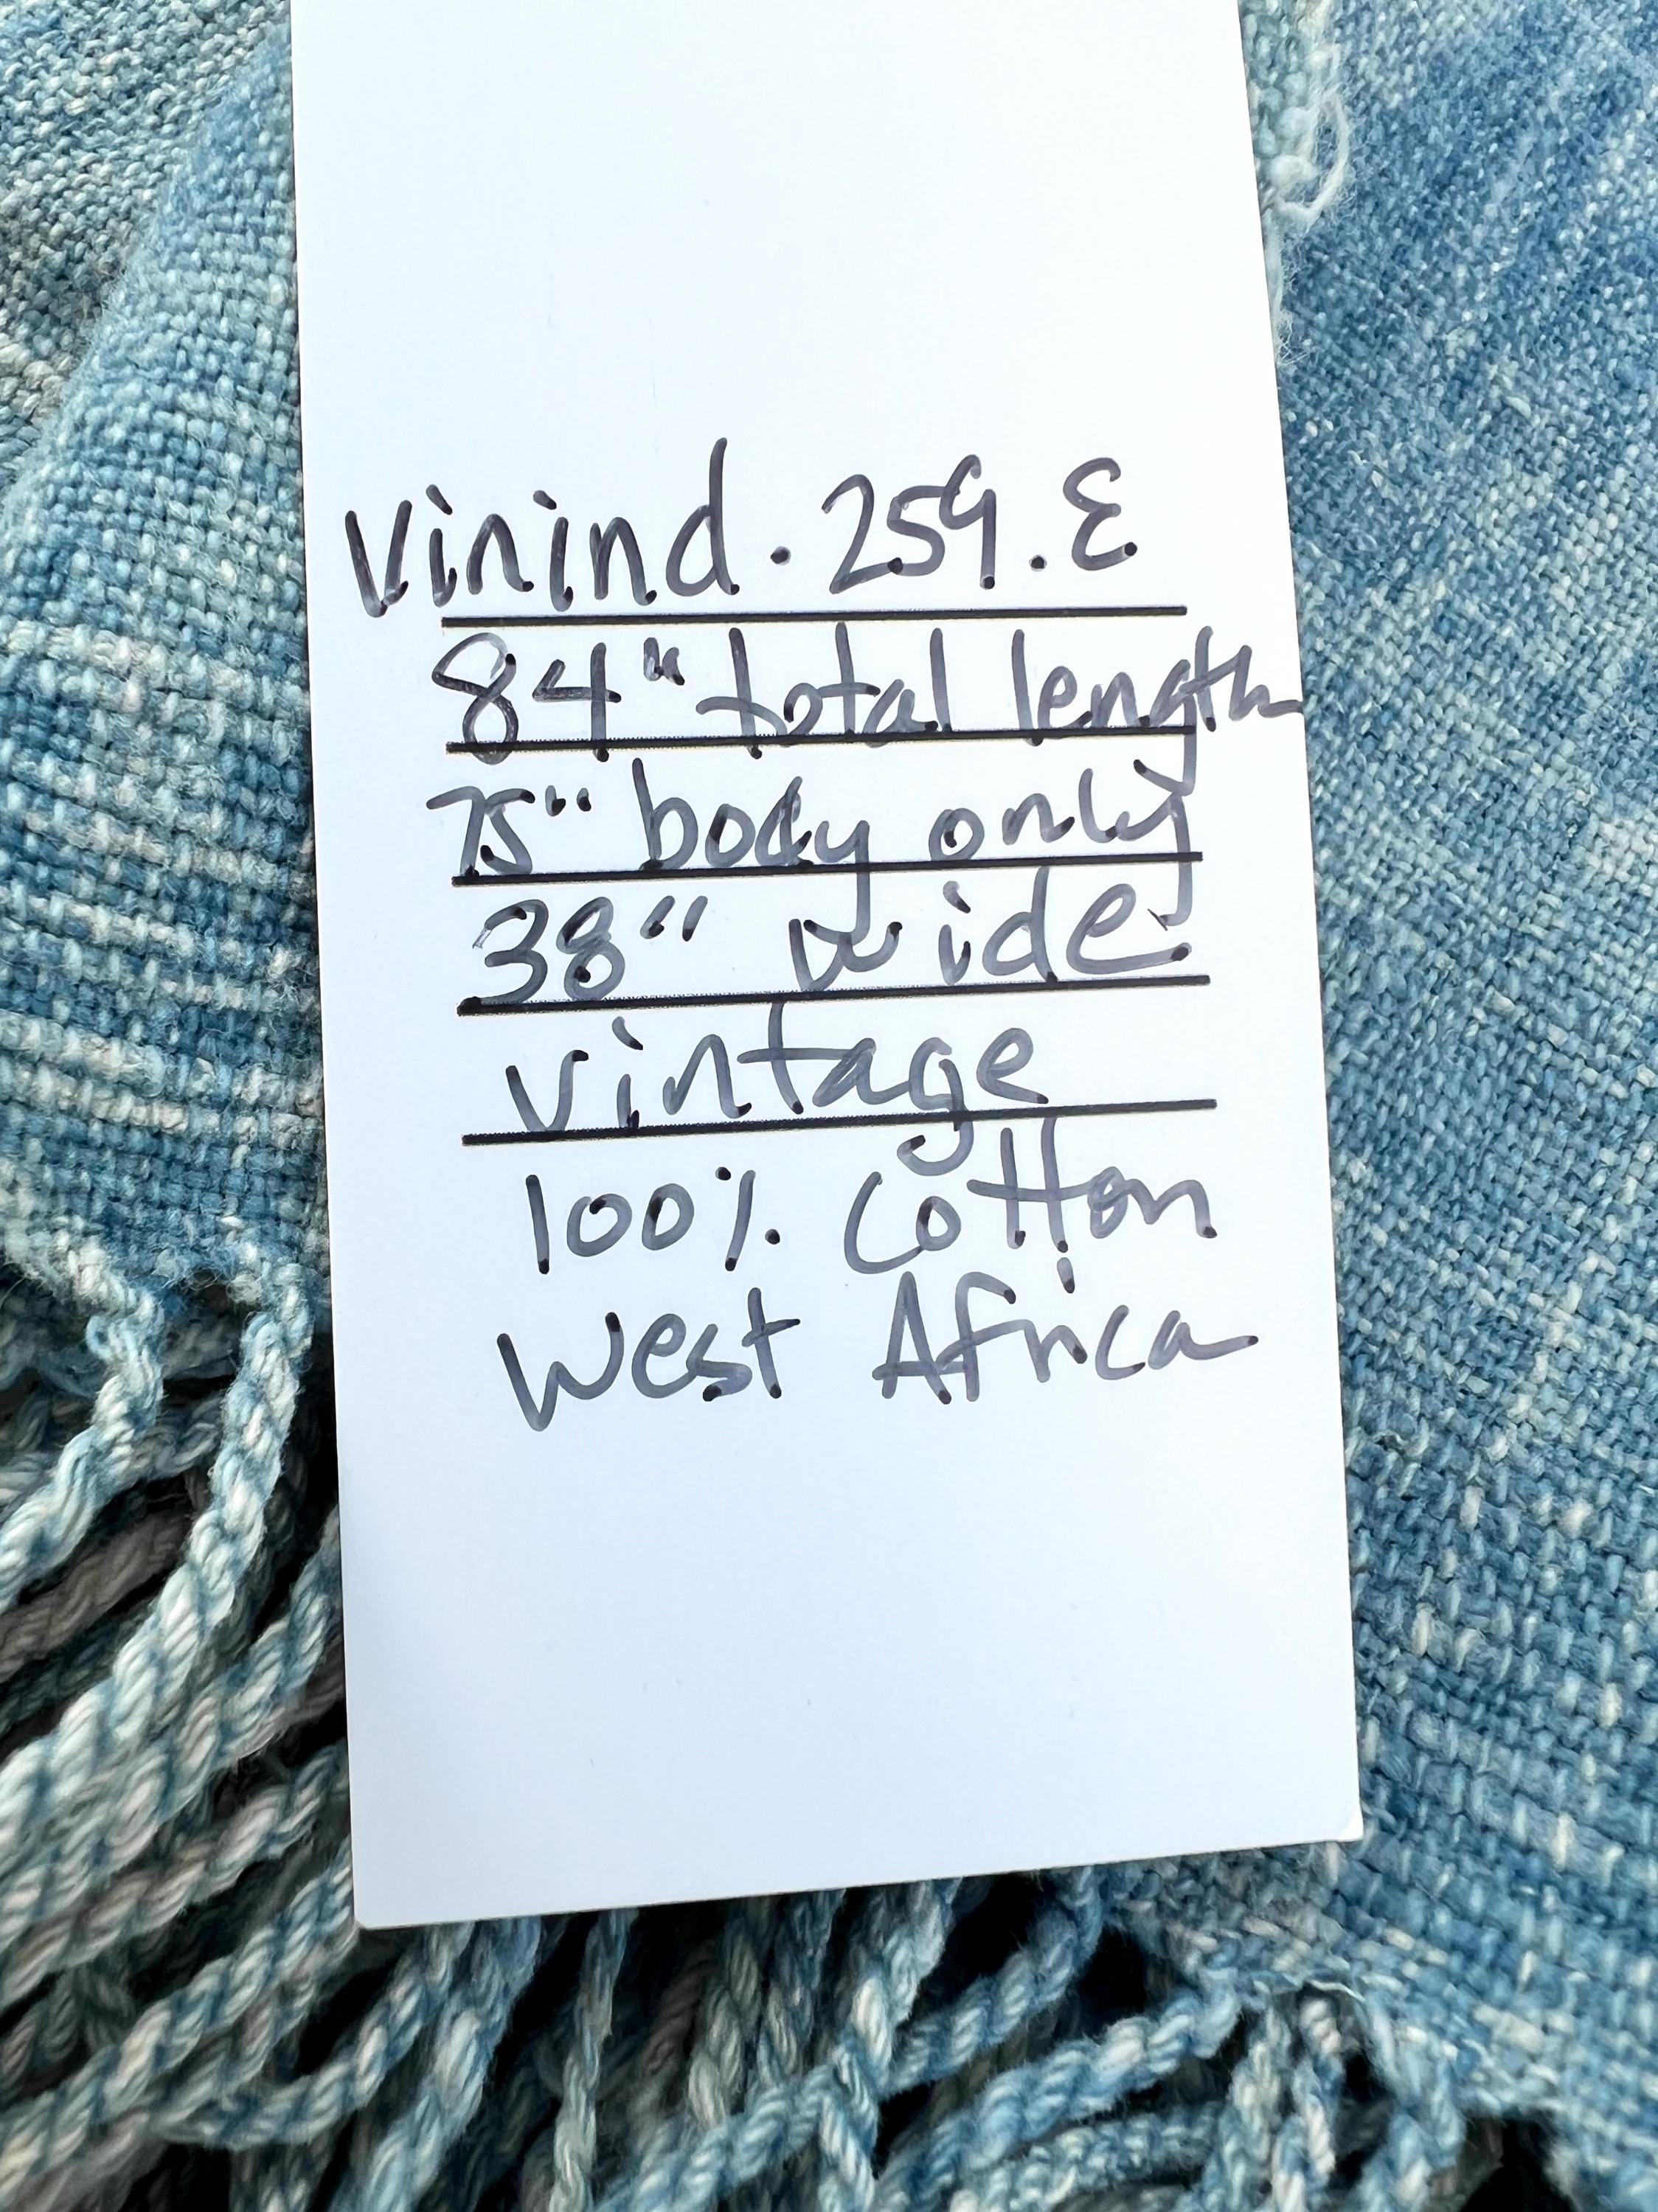 Vinind. 259. E
84" total length
75" body only
38" wide
Vintage
100% Cotton
West Africa